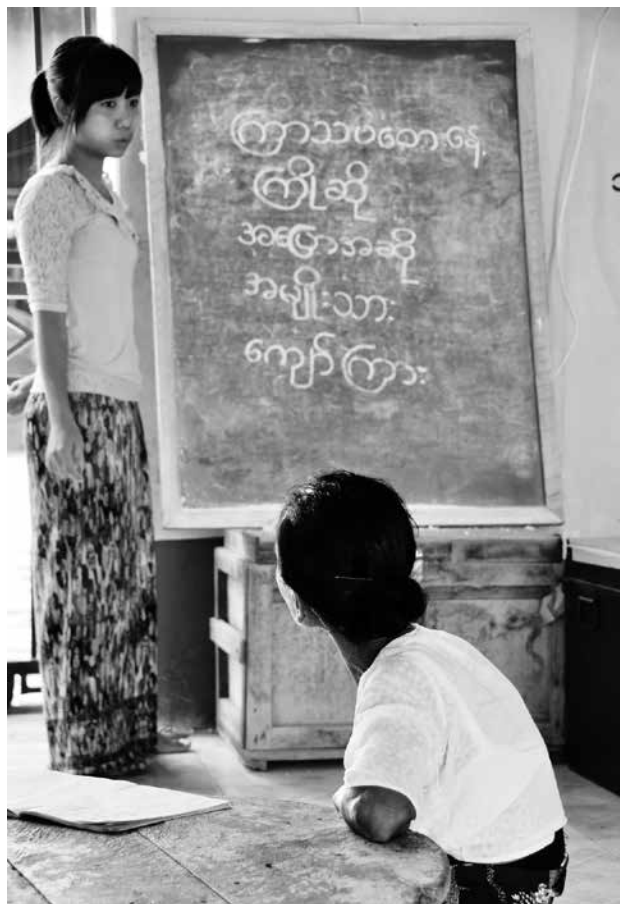 ကြာသပတေးနေ့
ကြိုဆို
အပြောအဆို
အမျိုးသား
ကျော်ကြား